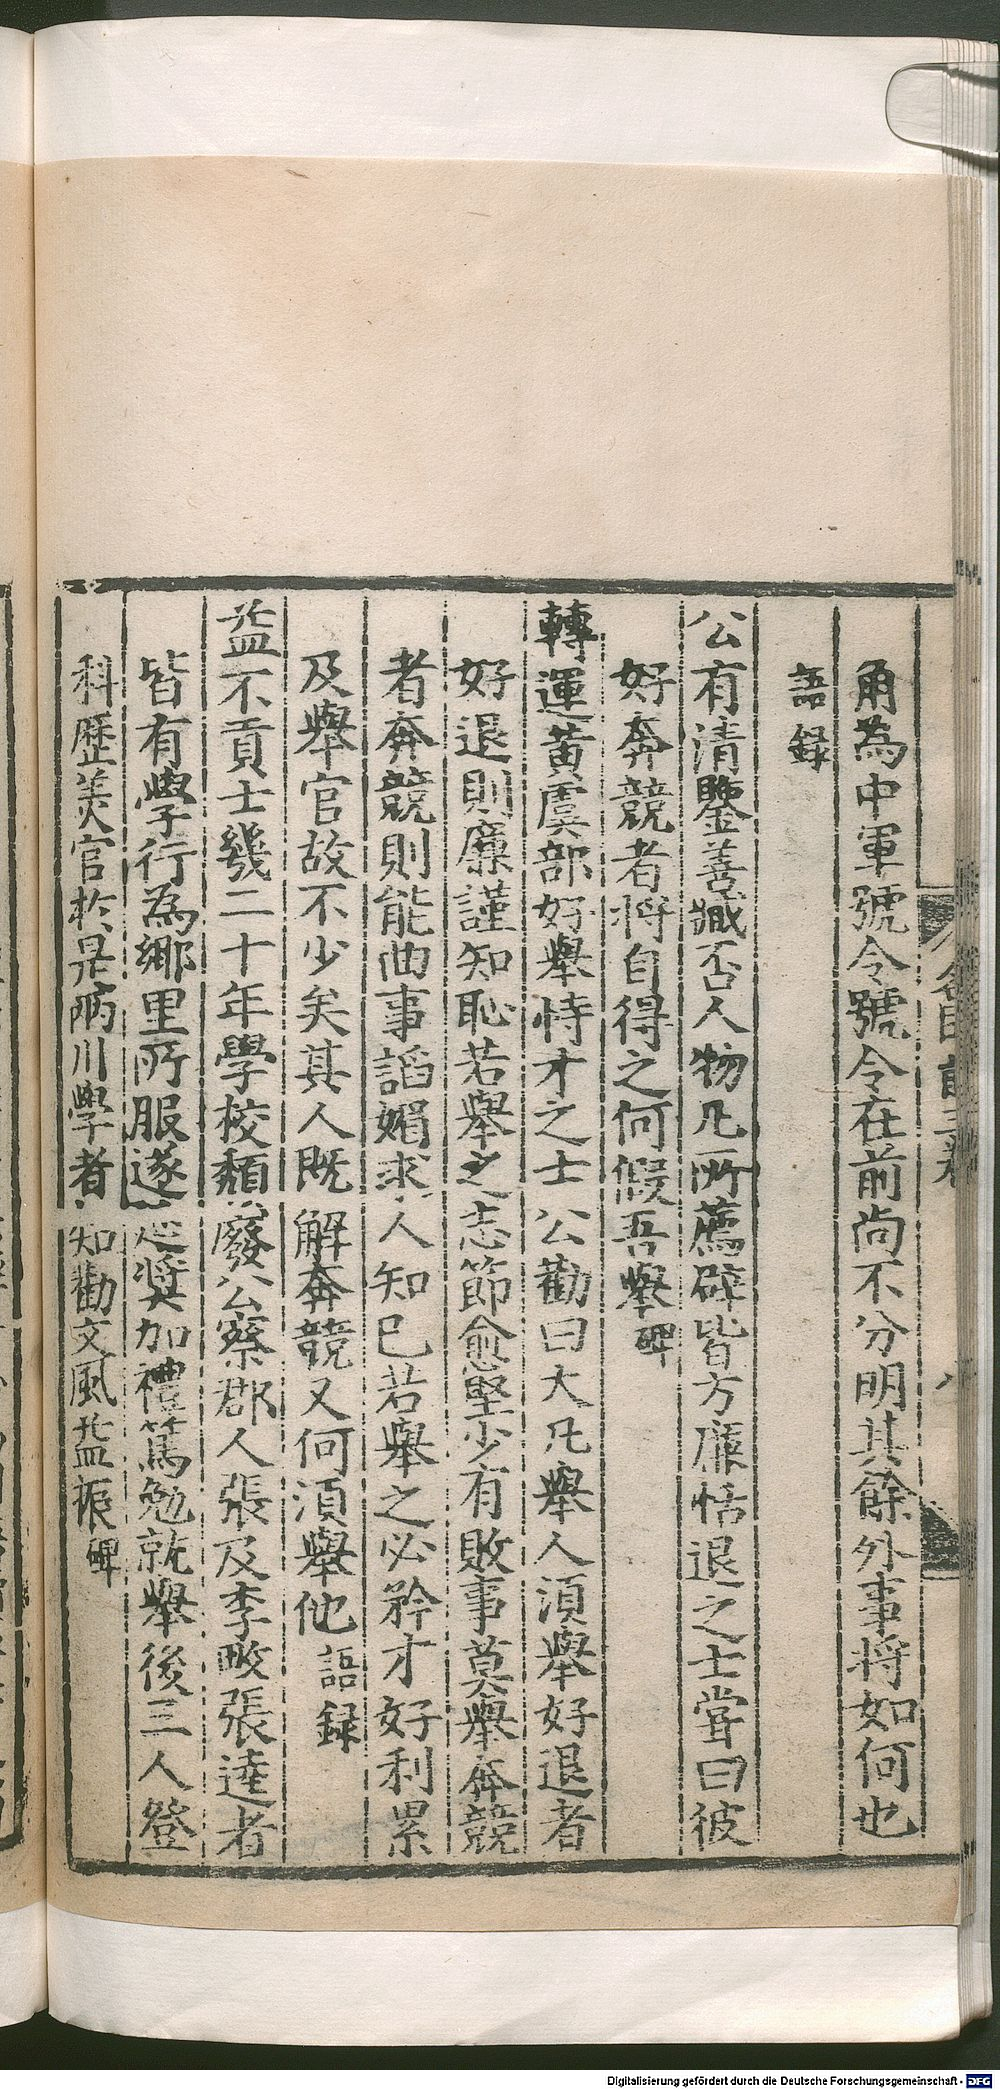 角為中軍號令號令在前尚不分明其餘外事將如何也
語録
公有清鑒善臧否人物凡所薦辟皆方廉恬退之士甞曰彼
好奔競者將自得之何假吾舉碑
轉運黄虞部好舉恃才之士公勸曰大凡舉人須舉好退者
好退則廉謹知恥若舉之志節愈堅少有敗事莫舉奔競
者奔競則能曲事謟媚求人知已若舉之必矜才好利累
及舉官故不少矣其人既解奔競又何湏舉他語録
益不貢士幾二十年學校頽廢公察郡人張及李畋張逵者
皆有學行為鄉里所服遂延奬加禮篤勉就舉後三人登
科歴美官於是两川學者知勸文風益振碑
名臣前三卷
八
Digitalisierung gefördert durch die Deutsche Forschungsgemeinschaft - DFG